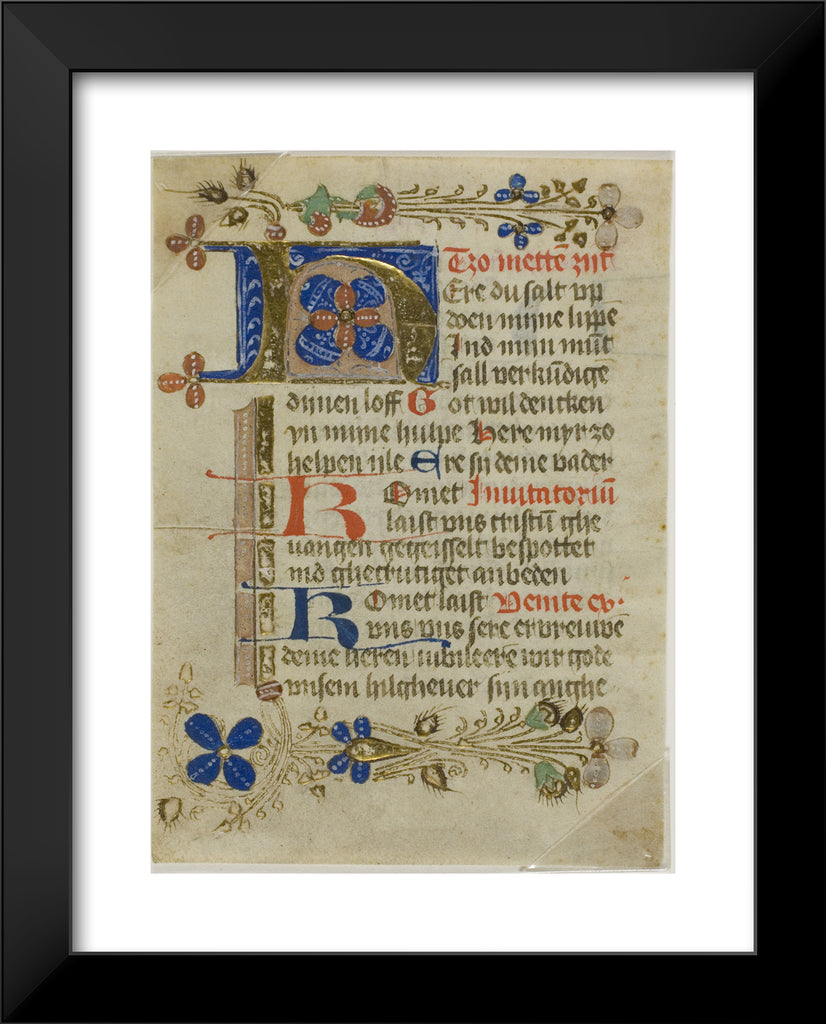 H Tzo mettē zijt
Ere du salt vp
doen mijne lippe
Ind mijn mūt
sall verkūdige
dijnen loff Got wil dencken
yn mijne hulpe Here myr zo
helpen ijle Ere sij deme vader
Komet Inuitatoriū
laist vns cristū ghe
uangen gegeisselt bespottet
ind ghecrutiget anbeden
Komet laist Venite ex
vns vns sere ervreuwē
deme heren iubileere wir gode
vnsem hilgheuer syn anghe